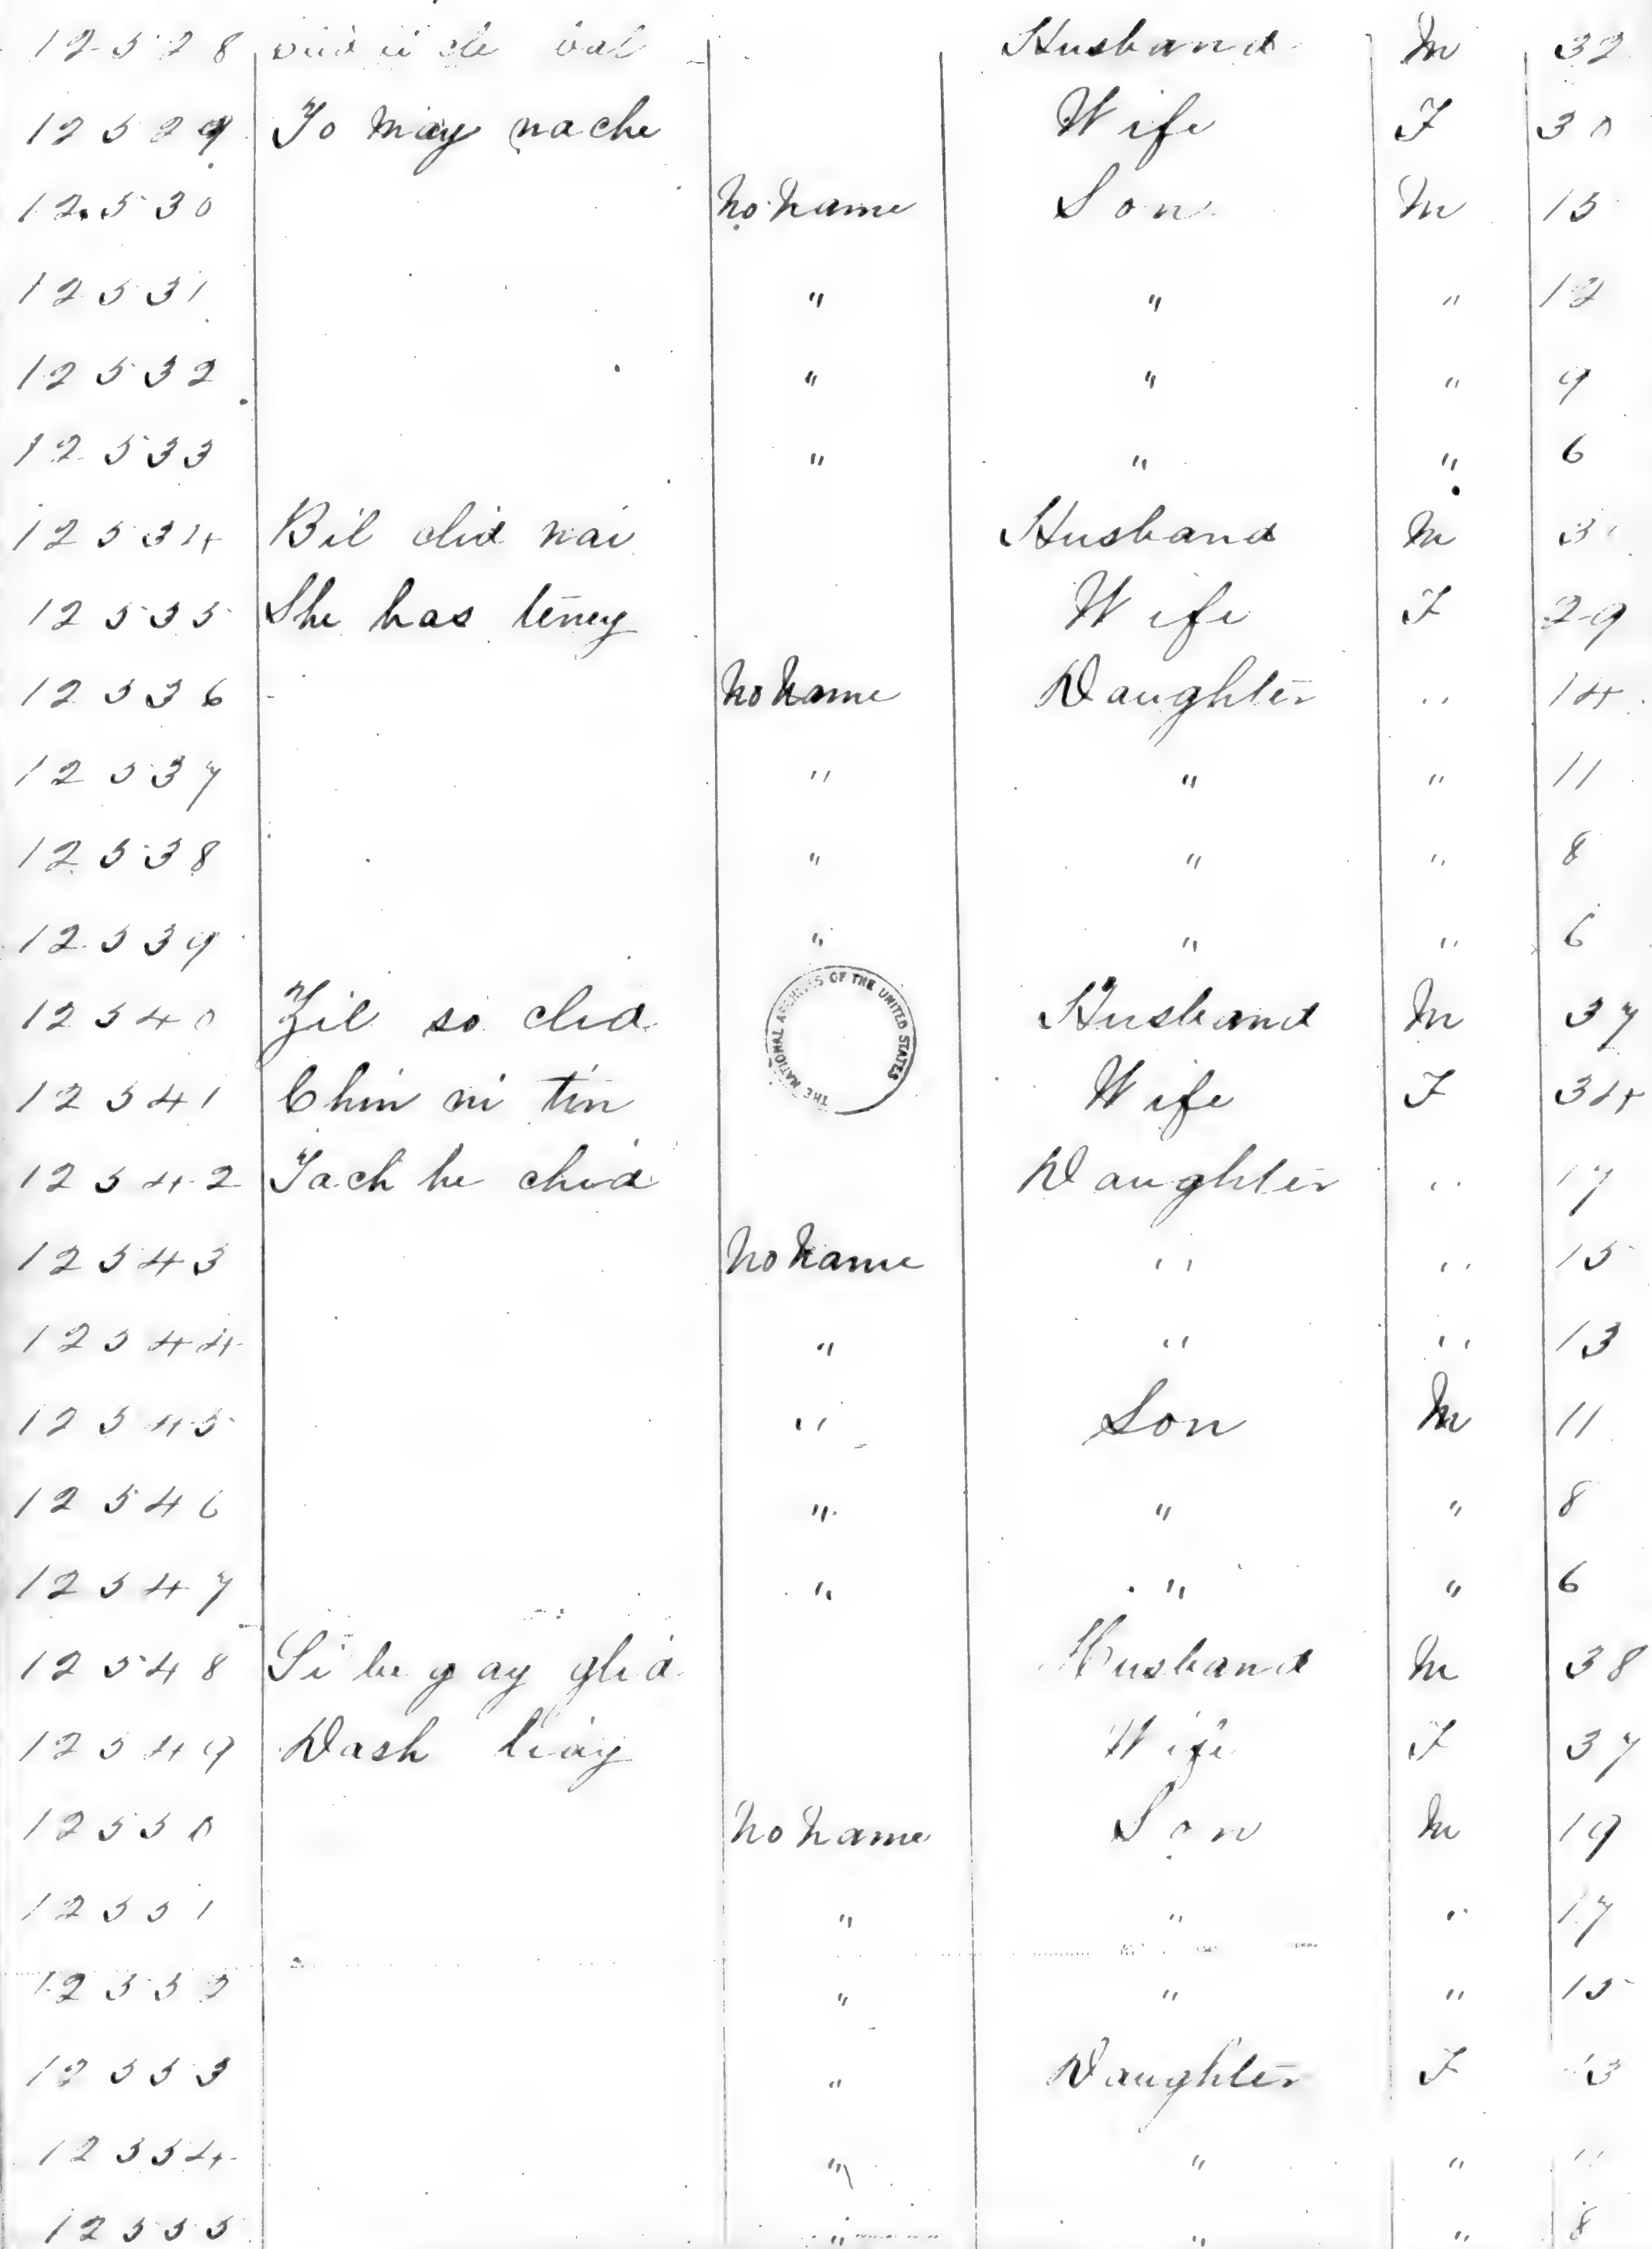 12528 Husband M 32
12529 Yo may nache Wife F 30
12530 No Name Son M 15
12531 " " " 12
12532 " " " 9
12533 " " " 6
12534 Bil clid nai Husband M
12535 She has teney Wife F 29
12536 No Name Daughter " 14
12537 " " " 11
12538 " " " 8
12539 " " " 6
THE NATIONAL ARCHIVES OF THE UNITED STATES
12540 Zil so clid Husband M 37
12541 Chin ni tin Wife F 34
12542 Tach he chid Daughter " 17
12543 No Name " " 15
12544 " " " 13
12545 " Son M 11
12546 " " " 8
12547 " " " 6
12548 Si be gay glid Husband M 38
12549 Dash liay Wife F 37
12550 No Name Son M 19
12551 " " " 17
12552 " " " 15
12553 " Daughter F 13
12554 " " "
12555 " " " 8